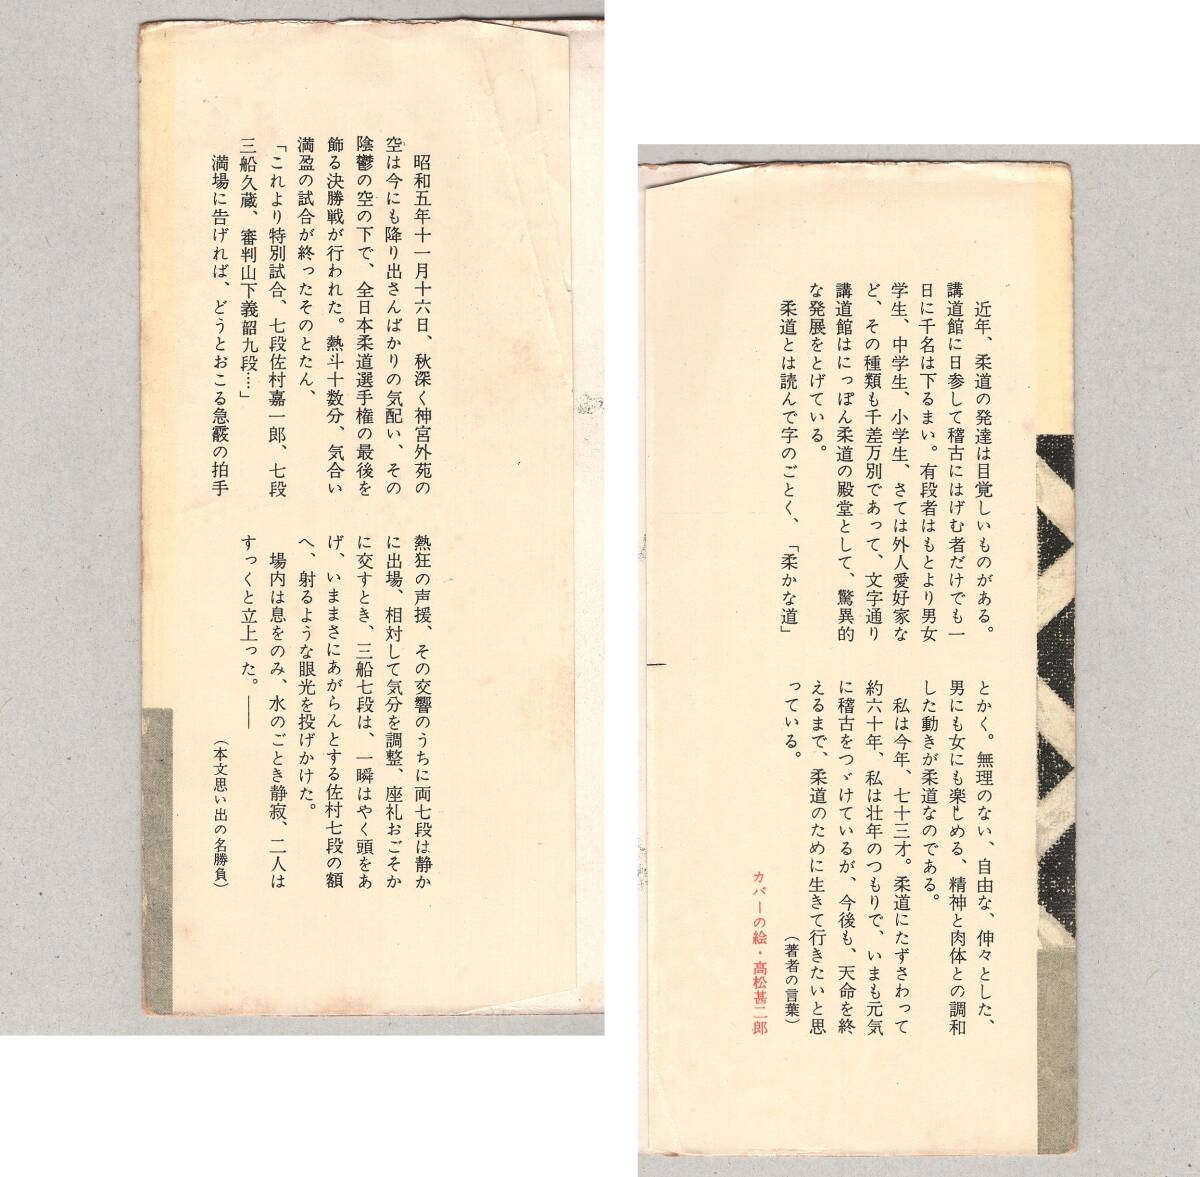 昭和五年十一月十六日、秋深く神宮外苑の
空は今にも降り出さんばかりの気配い、その
陰鬱の空の下で、全日本柔道選手権の最後を
飾る決勝戦が行われた。熱斗十数分、気合い
満盈の試合が終ったそのとたん、
「これより特別試合、七段佐村嘉一郎、七段
三船久蔵、審判山下義韶九段……」
満場に告げれば、どうとおこる急霰の拍手
熱狂の声援、その交響のうちに両七段は静か
に出場、相対して気分を調整、座礼おごそか
に交すとき、三船七段は、一瞬はやく頭をあ
げ、いままさにあがらんとする佐村七段の額
へ、射るような眼光を投げかけた。
場内は息をのみ、水のごとき静寂、二人は
すっくと立上った。――
（本文思い出の名勝負）
近年、柔道の発達は目覚しいものがある。
講道館に日参して稽古にはげむ者だけでも一
日に千名は下るまい。有段者はもとより男女
学生、中学生、小学生、さては外人愛好家な
ど、その種類も千差万別であって、文字通り
講道館はにっぽん柔道の殿堂として、驚異的
な発展をとげている。
柔道とは読んで字のごとく、「柔かな道」
とかく。無理のない、自由な、伸々とした、
男にも女にも楽しめる、精神と肉体との調和
した動きが柔道なのである。
私は今年、七十三才。柔道にたずさわって
約六十年、私は壮年のつもりで、いまも元気
に稽古をつゞけているが、今後も、天命を終
えるまで、柔道のために生きて行きたいと思
っている。
（著者の言葉）
カバーの絵・高松甚二郎